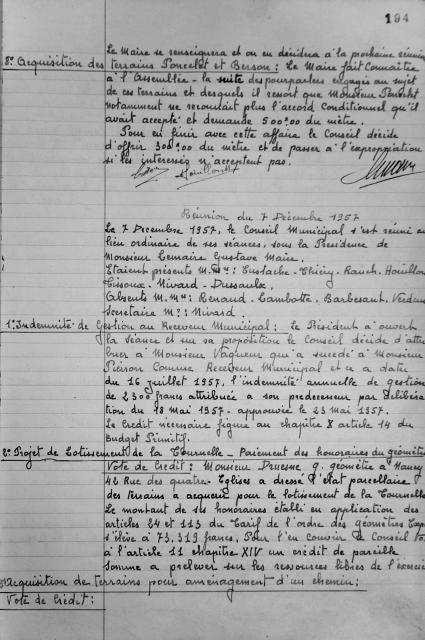 194
Le Maire se renseignera et on en décidera à la prochaine réunion
8° Acquisition des terrains Poncelet et Berson : Le Maire fait connaître
à l'Assemblée - la suite des pourparlers engagés au sujet
de ces terrains et desquels il ressort que Monsieur Poncelet
notamment ne reconnait plus l'accord conditionnel qu'il
avait accepté et demande 500°00 du mètre.
Pour en finir avec cette affaire le Conseil décide
d'offrir 300°00 du mètre et de passer à l'expropriation
si les interessés n'acceptent pas.
Réunion du 7 Décembre 1957
Le 7 Décembre 1957, le Conseil Municipal s'est réuni au
lieu ordinaire de ses séances, sous la Présidence de
Monsieur Lemaire Gustave Maire.
Etaient présents M.Mrs : Eustache - Thiéry - Rauch. Houillon
Nivard - Dussaulx.
Absents M.Mrs : Renaud - Lambotte. Barbesant.
Secretaire Mr : Nivard.
1° Indemnité de Gestion au Receveur Municipal : Le Président a ouvert
la séance et sur sa propotition le Conseil décide d'attri
buer à Monsieur Vagneur qui a succédé à Monsieur
Pierron Comme Receveur Municipal et ce a dater
du 16 juillet 1957, l'indemnité annuelle de gestion
de 2300 francs attribuée a son predecesseur par deliběra
tion du 18 Mai 1957 - approuvée le 23 Mai 1957.
Le Credit nécessaire figure au chapitre X article 14 du
Budget Primitif.
2° Projet de Lotissement de la Tournelle - Paiement des honoraires du géomètre
Vote de Credit : Monsieur Druesne g. géomètre à Nancy
42 Rue des quatre-Eglises a dressé l'état parcellaire
des terrains a acquerir pour le lotissement de la Tournelle
Le montant de ses honoraires établi en application des
articles 24 et 113 du Tarif de l'ordre des géomètres Exp
s'élève à 73.319 francs. Pour l'en couvrir le Conseil vo
à l'article 11 chapitre XIV un crédit de pareille
somme a prelever sur les ressources libres de l'exercice
3° Acquisition de terrains pour aménagement d'un chemin :
Vote de Crédit :